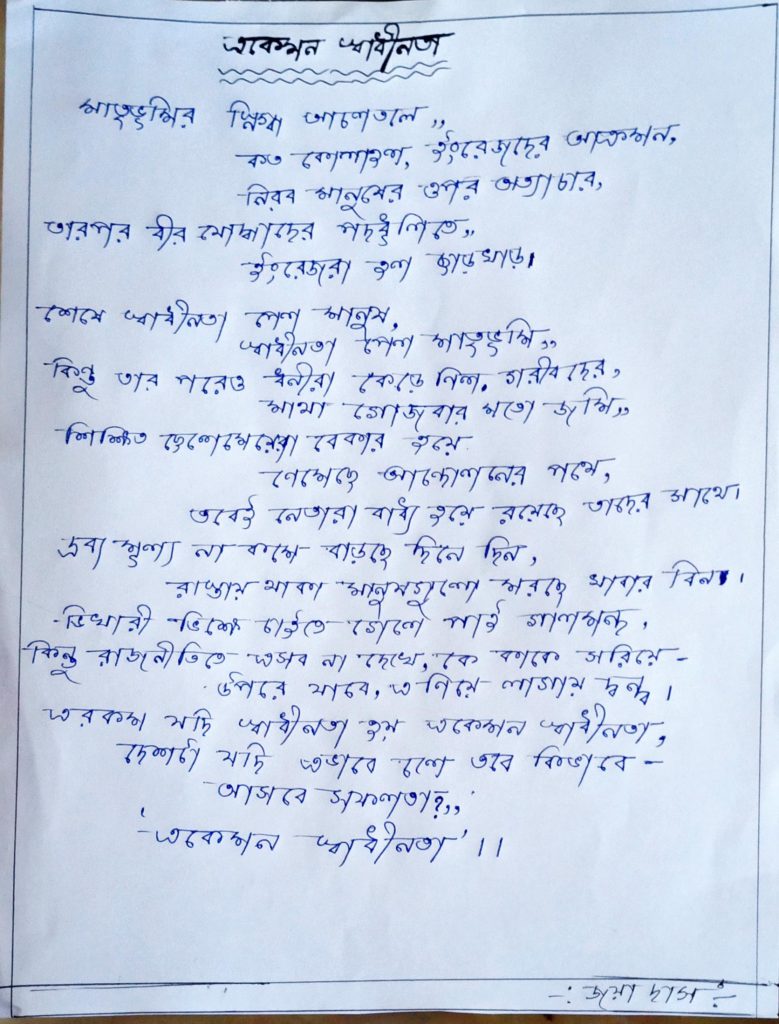 একেমন স্বাধীনতা
মাতৃভূমির স্নিগ্ধ আলোতলে,,
কত কোলাহল, ইংরেজদের আক্রমন,
নিরব মানুষের ওপর অত্যাচার,
তারপর বীর যোদ্ধাদের পদধূলিতে,,
ইংরেজরা হল ছাড়খাড়।
শেষে স্বাধীনতা পেল মানুষ,
স্বাধীনতা পেল মাতৃভূমি,,
কিন্তু তার পরেও ধনীরা কেড়ে নিল, গরীবদের,
মাথা গোজবার মতো জমি,,
শিক্ষিত ছেলেমেয়েরা বেকার হয়ে
নেমেছে আন্দোলনের পথে,
তবেই নেতারা বাধ্য হয়ে রয়েছে তাদের সাথে।
দ্রব্য মূল্য না কমে বাড়ছে দিনে দিন,
রাস্তায় থাকা মানুষগুলো মরছে খাবার বিনা।
ভিখারী ভিক্ষে চাইতে গেলে পাই গালমন্দ,
কিন্তু রাজনীতিতে এসব না দেখে, কে কাকে সরিয়ে -
উপরে যাবে, এ নিয়ে লাগায় দ্বন্দ্ব।
এরকম যদি স্বাধীনতা হয় একেমন স্বাধীনতা,
দেশটা যদি এভাবে চলে তবে কিভাবে -
আসবে সফলতা?,,
'একেমন স্বাধীনতা'।।
-: জয়া দাস :-